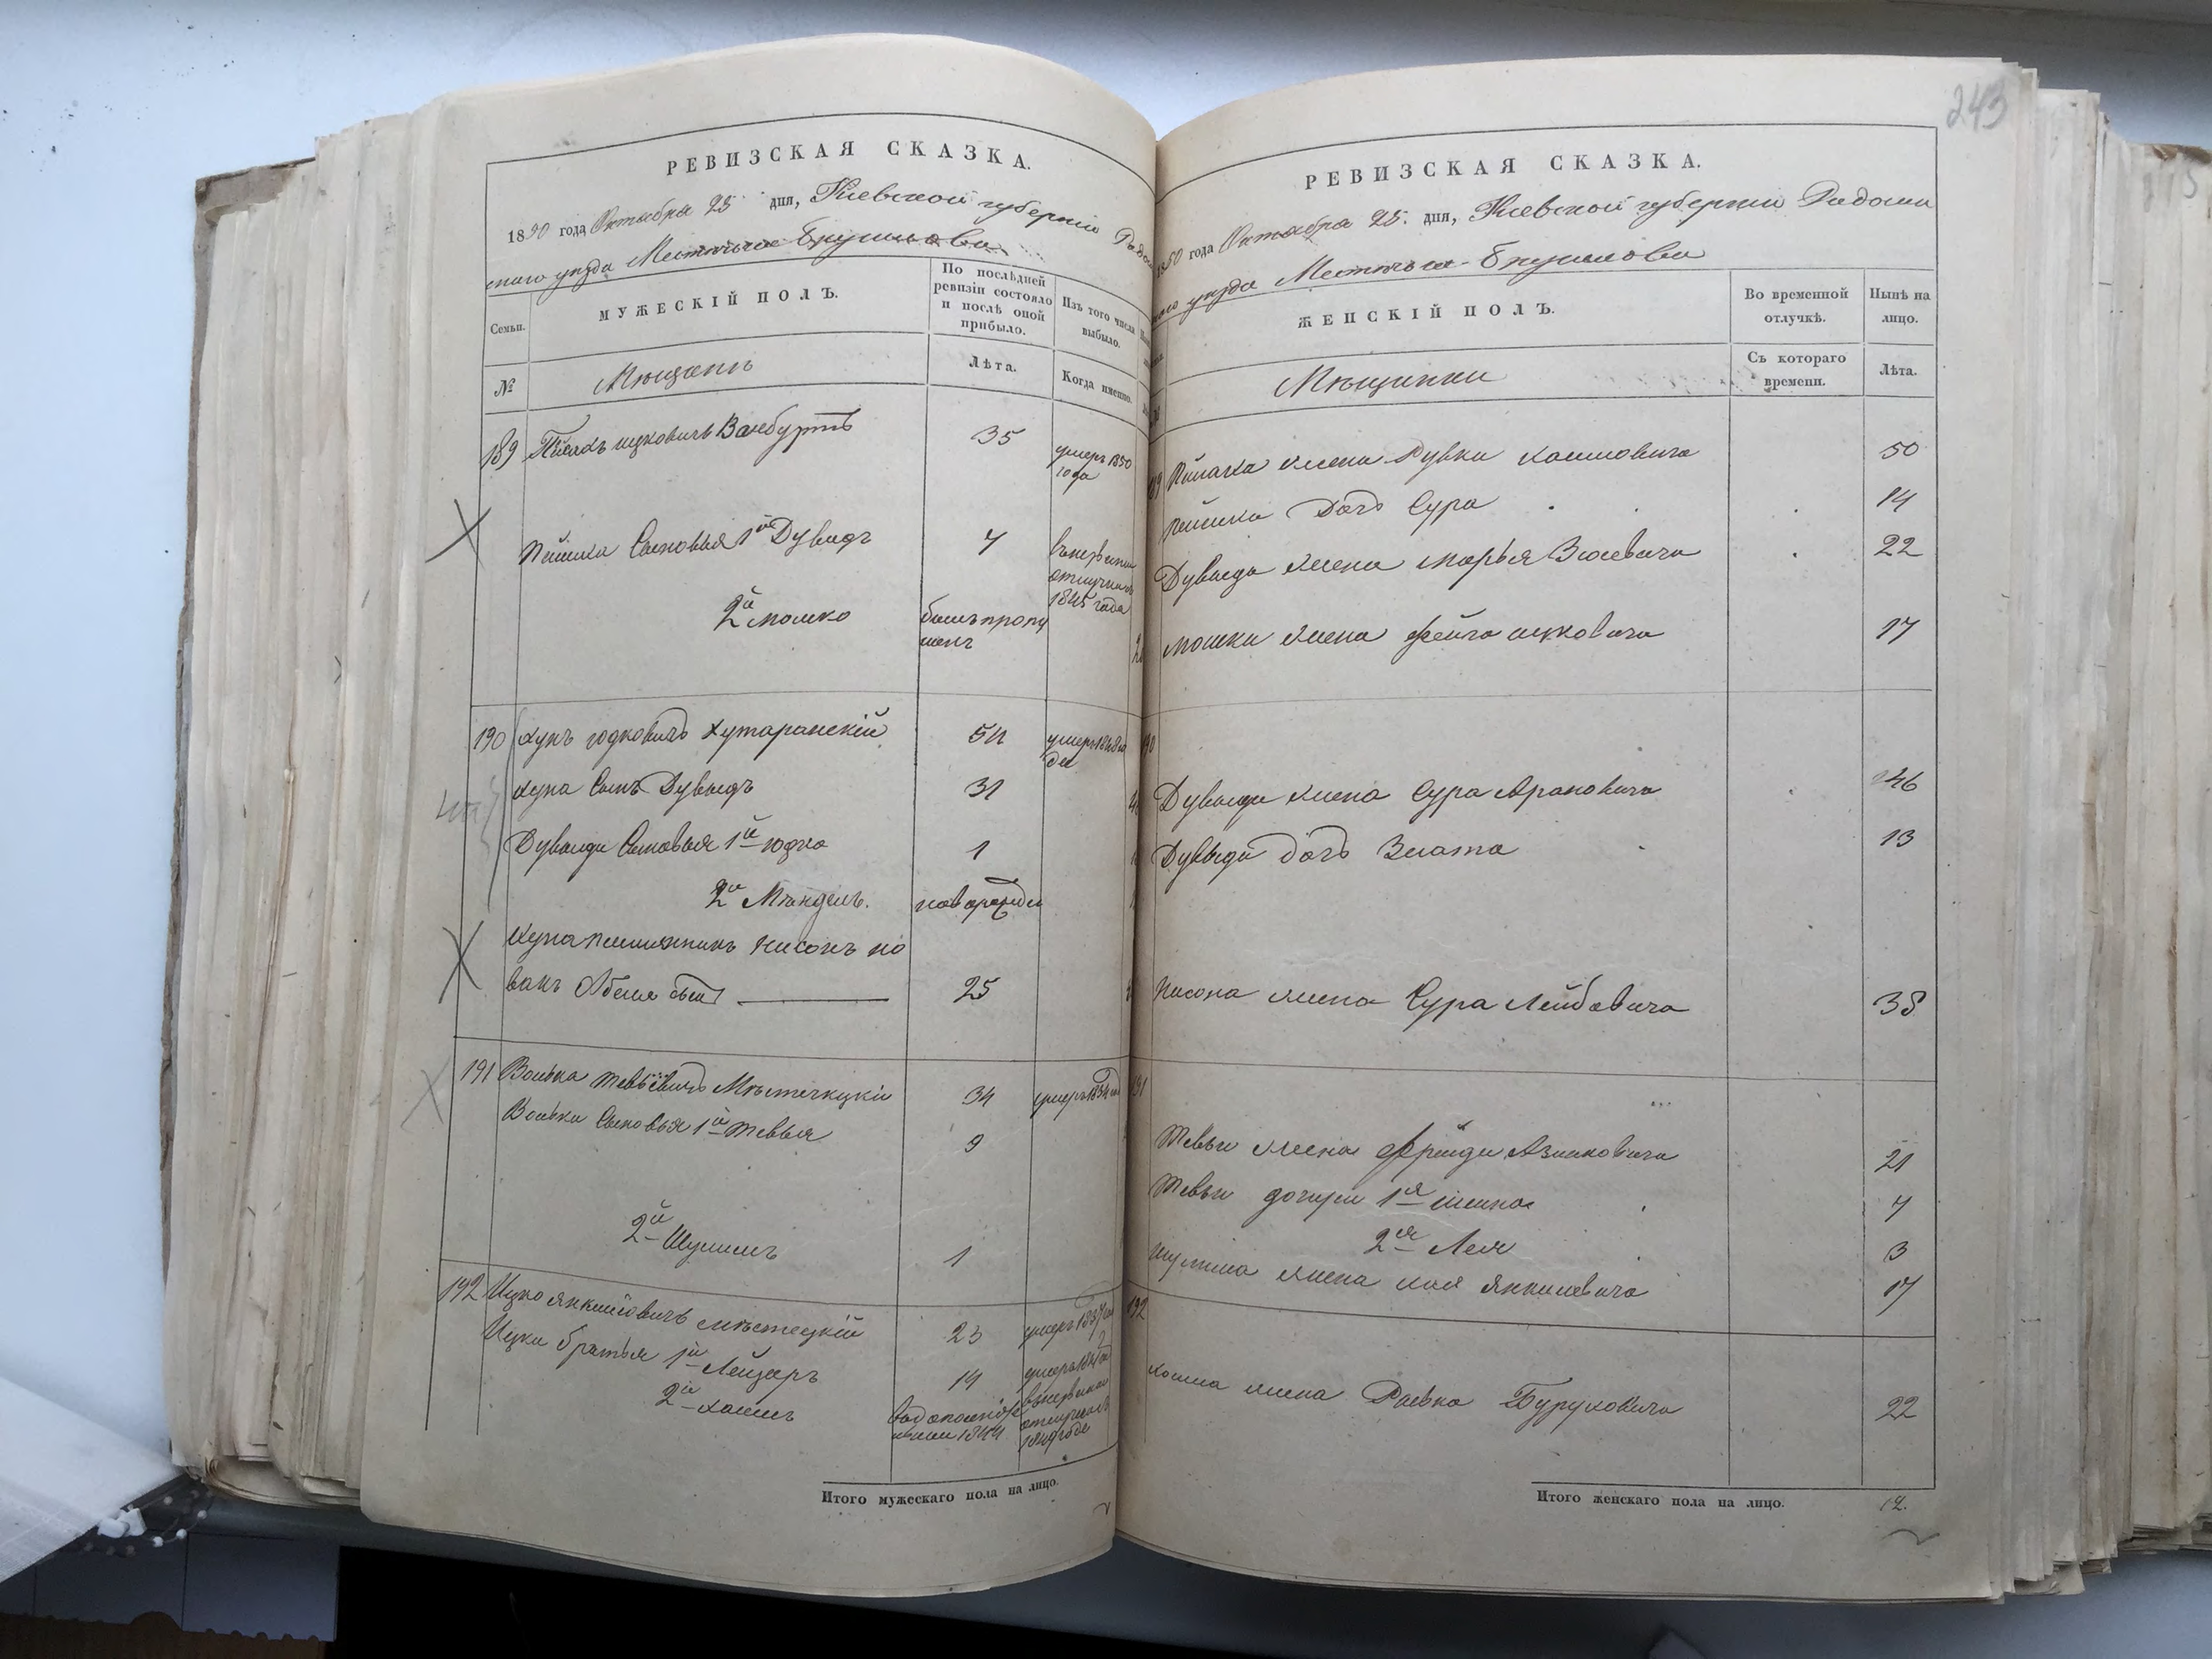 243
РЕВИЗСКАЯ СКАЗКА.
1850 года Октября 25 дня, Киевской губерніи Радо
мысльскаго уѣзда Мѣстечка Брусилова
Семьи.
МУЖЕСКІЙ ПОЛЪ.
По послѣдней ревизіи состояло и послѣ оной прибыло.
Изъ того числа выбыло.
№
Мещане
Лѣта.
Когда именно.
189 Ицковичъ 35 умеръ 1850 года
Сыновья 1й Дувидъ 7
отлучкѣ 1845 года
2й Мошко былъ пропущенъ
190 Юдковичъ Хутаранскій 54 умеръ
сынъ Дувидъ 31
Дувида Сыновья 1й Юдко 1
2й Мендель. новорожден
Нисонъ Но
вакъ 25
191 Волька Тевьевичъ Мѣстечкцкій 34 умеръ 1834
Вольки Сыновья 1й Тевья 9
2й Шулимъ 1
192 Ицко Янкелевичъ Мѣстецкій 23 умеръ 1837
Ицки братья 1й Лейзаръ 19 умеръ
2й Хаимъ
1844
отлучкѣ
Итого мужескаго пола на лицо.
РЕВИЗСКАЯ СКАЗКА.
1850 года Октября 25. дня, Киевской губерніи Радомы
уѣзда Мѣстечка Брусилова
ЖЕНСКІЙ ПОЛЪ.
Во временной отлучкѣ.
Нынѣ на лицо.
Мѣщанки
Съ котораго времени.
Лѣта.
жена Рувка Хаимовича 50
дочь Сура 14
Дувида жена Марья 22
Мошки жена Фейга Ицковича 17
190
Дувида жена Сура Ароновича 46
Дувида дочь Злата 13
Нисона жена Сура Лейбовича 38
191
Тевьи жена Фрейда 21
Тевьи дочери 1я 7
2я Лея 3
Шулима жена Хая Янкелевича 17
192
Хаима жена Ривка Буруховича 22
Итого женскаго пола на лицо. 12.